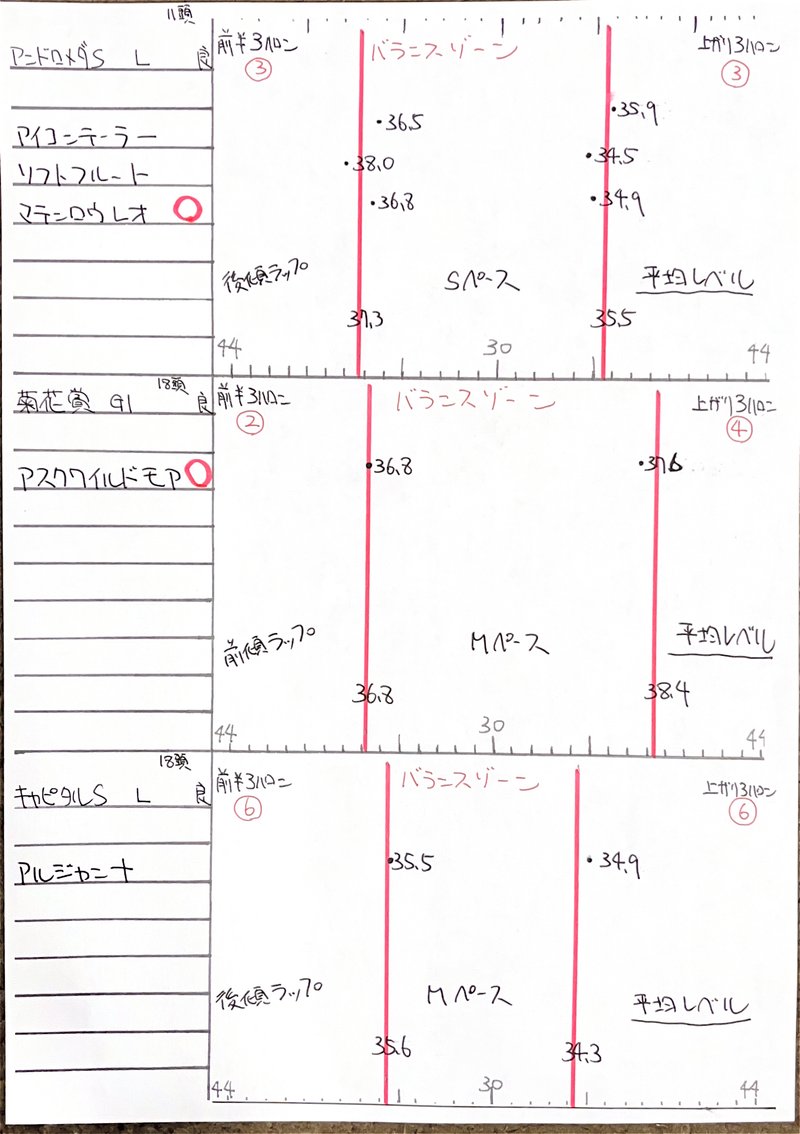 11頭
アンドロメダS L 良
前半3ハロン
バランスゾーン
上がり3ハロン
③
③
アイコンテーラー
・36.5
・35.9
リフトフルート
・38.0
・34.5
マテンロウレオ ○
・36.8
・34.9
後傾ラップ
Sペース
平均レベル
37.3
35.5
44
30
44
18頭
菊花賞 G1 良
前半3ハロン
バランスゾーン
上がり3ハロン
②
④
アスクワイルドモア ○
・36.8
・37.6
前傾ラップ
Mペース
平均レベル
36.8
38.4
44
30
44
18頭
キャピタルS L 良
前半3ハロン
バランスゾーン
上がり3ハロン
⑥
⑥
アルジャンナ
・35.5
・34.9
後傾ラップ
Mペース
平均レベル
35.6
34.3
44
30
44